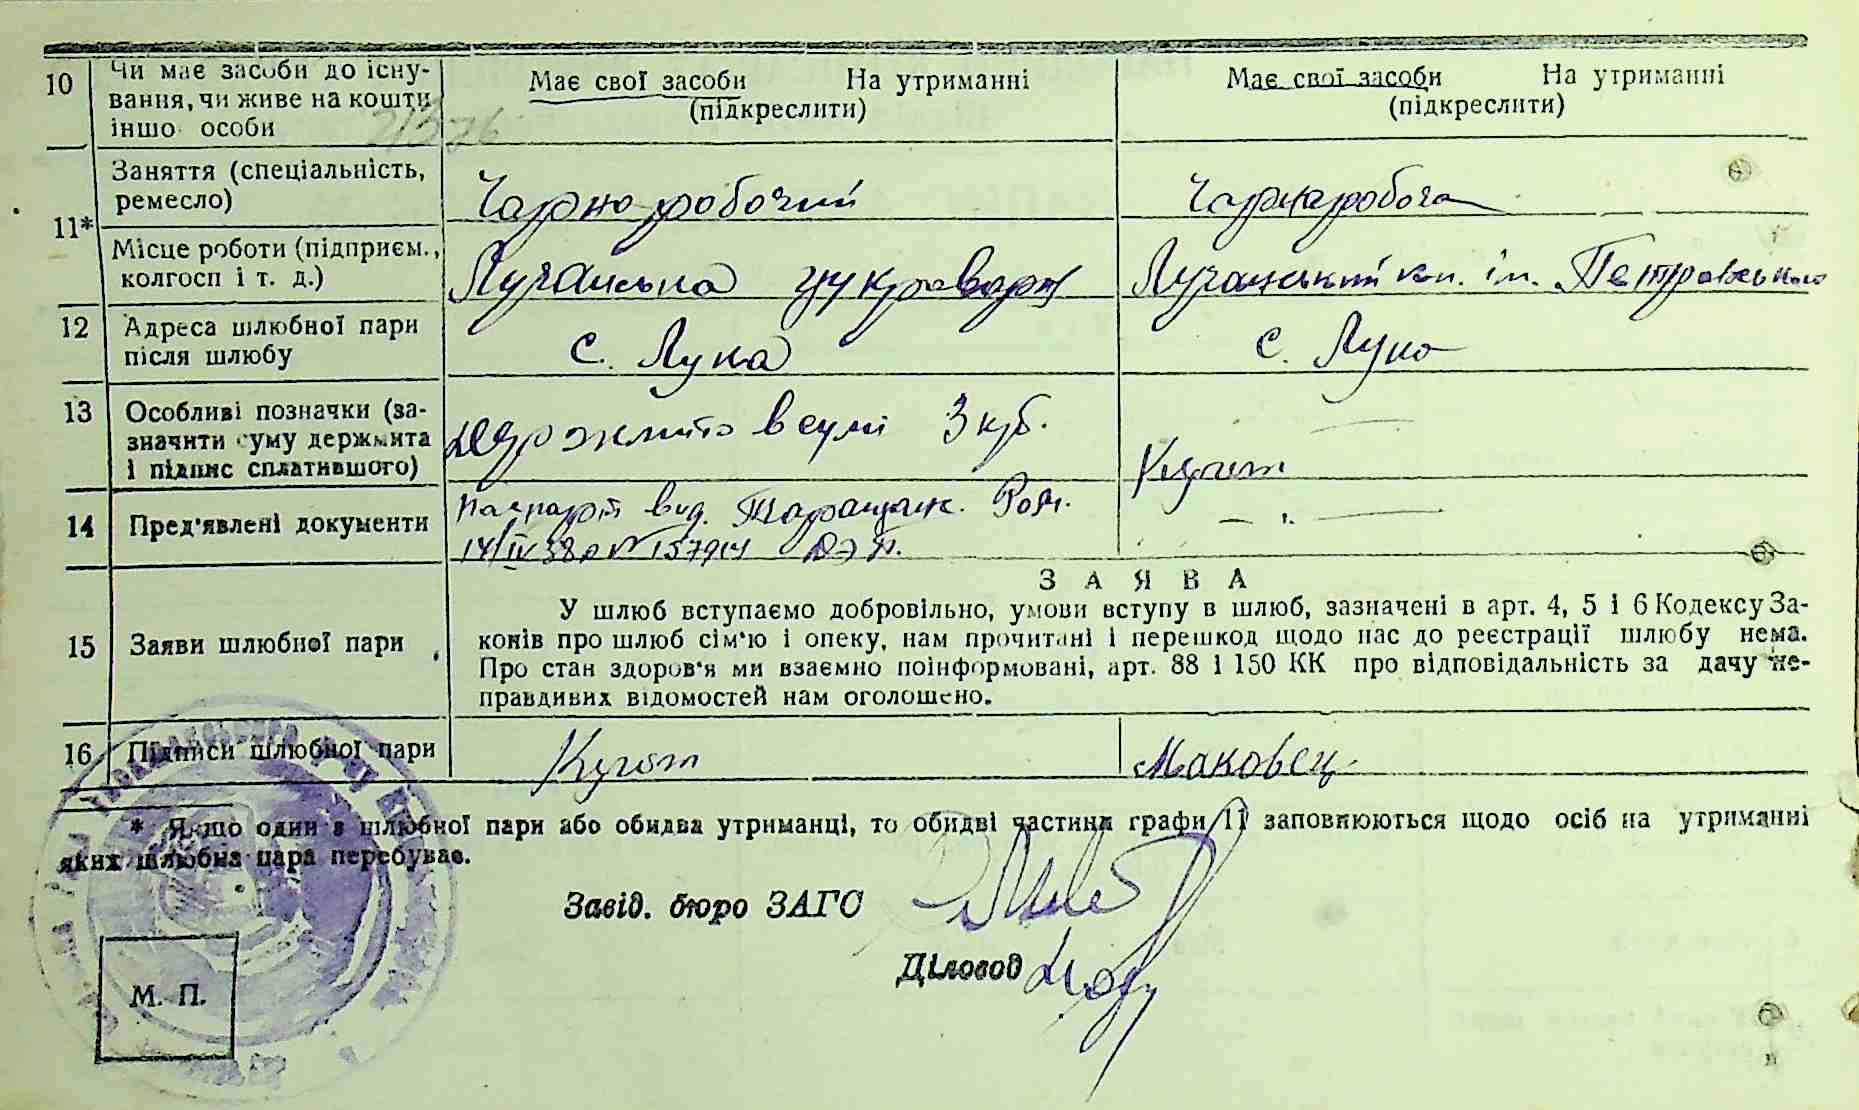 10 Чи має засоби до існу-
вання, чи живе на кошти
іншо особи
Має свої засоби На утриманні
(підкреслити)
Має свої засоби На утриманні
(підкреслити)
11*
Заняття (спеціальність,
ремесло)
Чорноробочий
Чорноробоча
Місце роботи (підприєм.,
колгосп і т. д.)
Лучанська цукроварня
Лучанський кол. ім. Петровського
12 Адреса шлюбної пари
після шлюбу
с. Лука
с. Лука
13 Особливі позначки (за-
значити суму держмита
і підпис сплатившого)
Держмито в сумі 3 крб.
14 Пред'явлені документи
Паспорт вид. Таращанськ. Р.в.м.
15 Заяви шлюбної пари
ЗАЯВА
У шлюб вступаємо добровільно, умови вступу в шлюб, зазначені в арт. 4, 5 і 6 Кодексу За-
конів про шлюб сім'ю і опеку, нам прочитані і перешкод щодо нас до реєстрації шлюбу нема.
Про стан здоров'я ми взаємно поінформовані, арт. 88 і 150 КК про відповідальність за дачу не-
правдивих відомостей нам оголошено.
16 Підписи шлюбної пари
Маковец
* Якщо один з шлюбної пари або обидва утриманці, то обидві частини графи 11 заповнюються щодо осіб на утриманні
яких шлюбна пара перебуває.
Завід. бюро ЗАГС
Діловод
М. П.